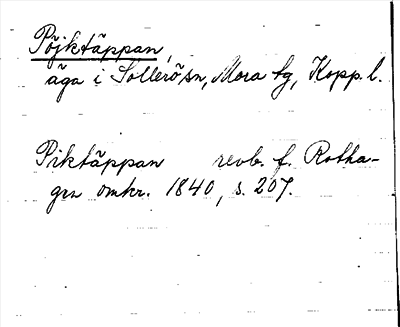 Pöjktäppan,
äga i Sollerö sn, Mora tg, Kopp. l.
Piktäppan revb. f. Rotha-
gen omkr. 1840, s. 207.